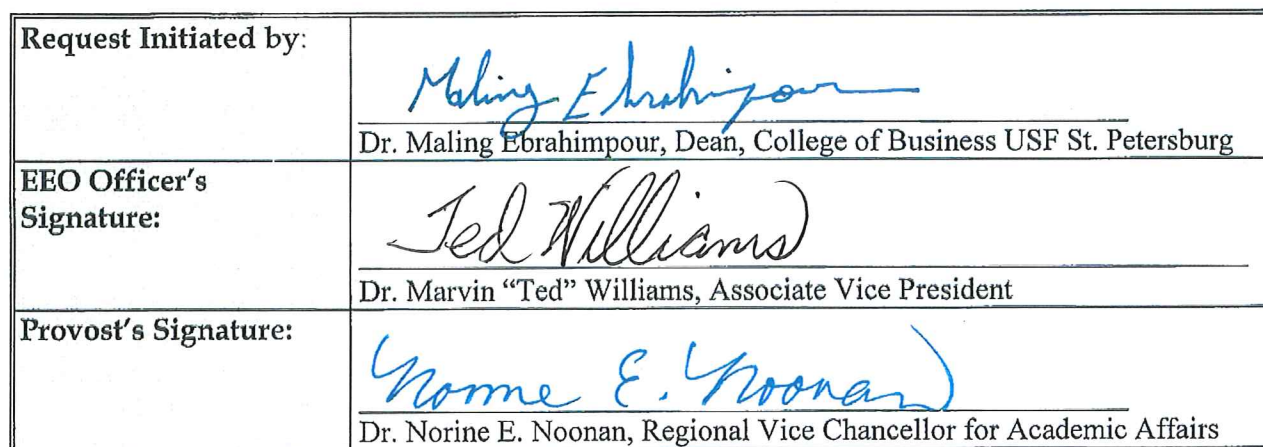 Request Initiated by:
Maling Ebrahimpour
Dr. Maling Ebrahimpour, Dean, College of Business USF St. Petersburg
EEO Officer's
Signature:
Ted Williams
Dr. Marvin “Ted” Williams, Associate Vice President
Provost's Signature:
Norine E. Noonan
Dr. Norine E. Noonan, Regional Vice Chancellor for Academic Affairs